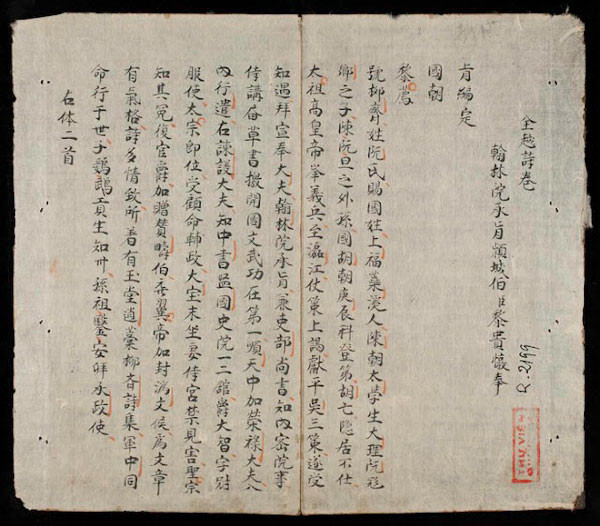 全越詩卷
翰林院承旨頴城伯臣黎貴惇奉
旨編定
國朝
黎廌
號抑齋姓阮氏賜國姓上福蘂溪人陳朝太學生大理阮飛
卿之子陳阮旦之外孫國胡朝庚辰科登第胡亡隱居不仕
太祖高皇帝举義兵至瀘江仗策上謁獻平吳三策遂受
知遇拜宣奉大夫翰林院承旨兼吏部尚書知內密院事
侍講命草書檄開國文武功在第一順天中加榮祿大夫入
內行遣右諫議大夫知中書監國史院一二舘爵大智字尉
服使太宗即位受顧命輔政大宝末坐妻侍宮禁見害聖宗
知其冤復官爵加贈賛疇伯翼帝加封濟文侯為文章
有氣格詩多情致所著有玉堂遺藁抑齋詩集軍中同
命行于世子鸚鵡貢生知州孫祖鑒安拜承政使
右体二首
R.2199